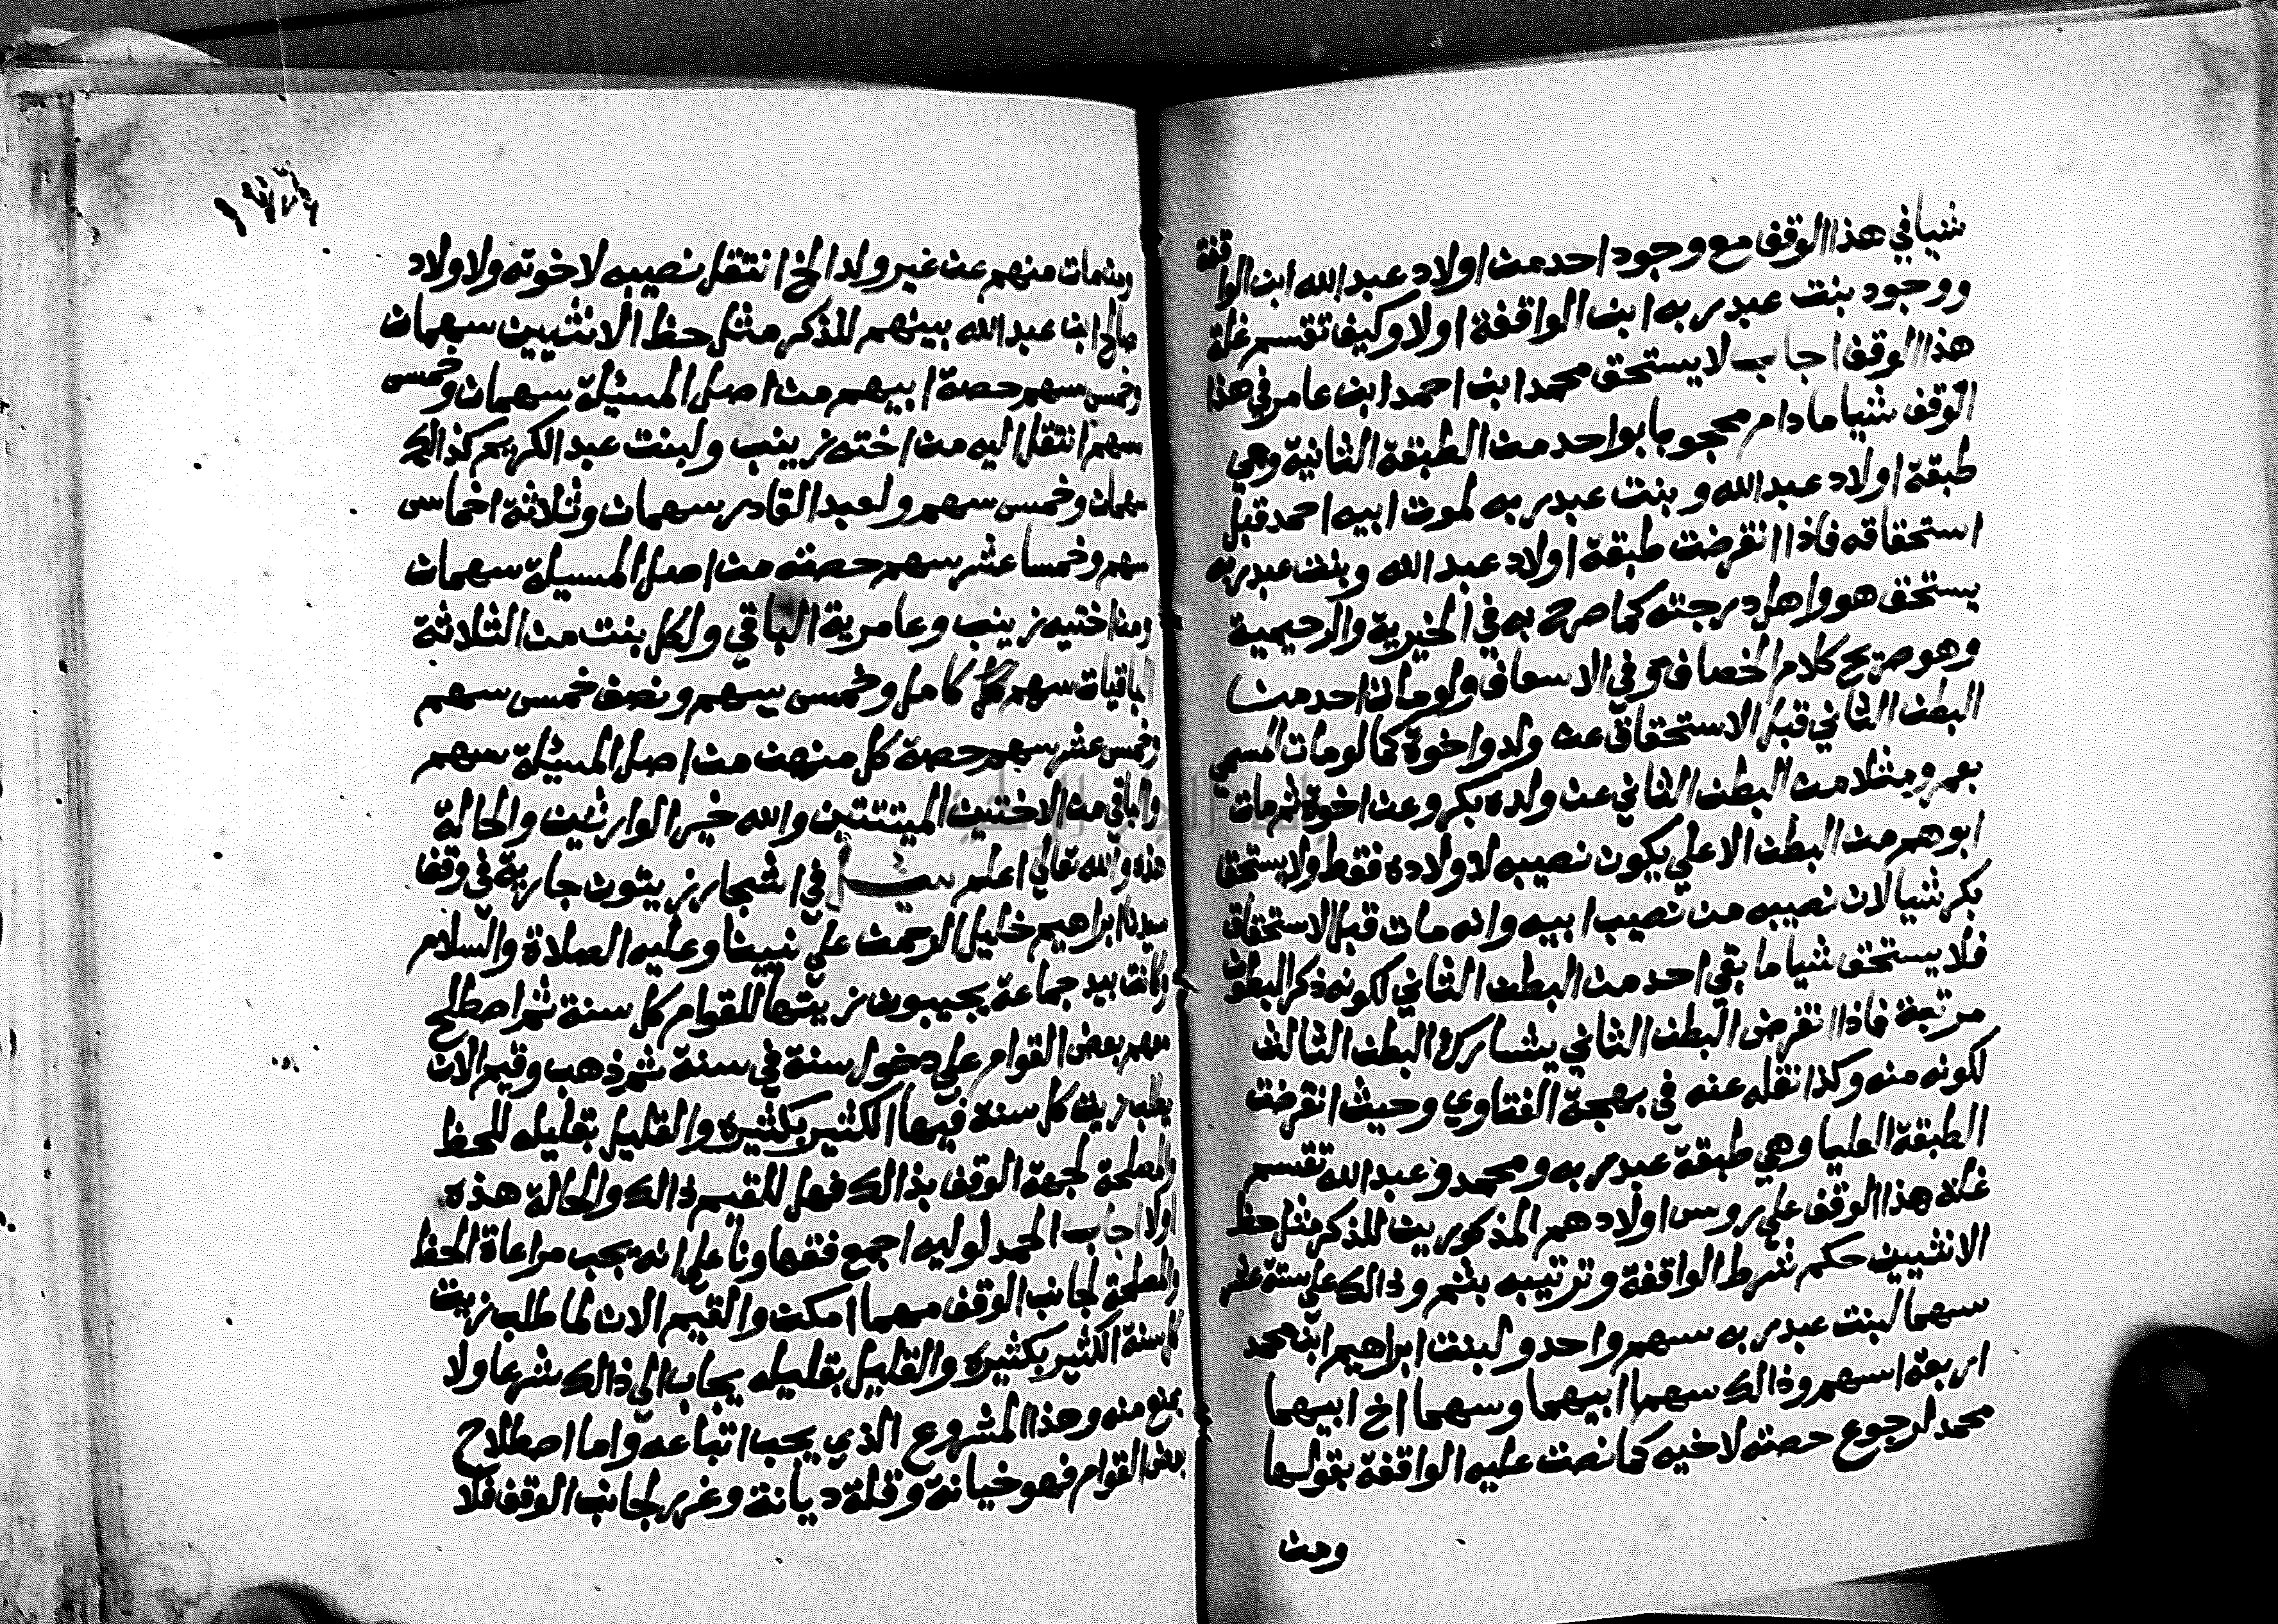 شيا في هذا الوقف مع وجود احد من اولاد عبد الله ابن الواقفة
ووجود بنت عبد ربه ابن الواقفة اولا وكيف تقسم غلة
هذا الوقف اجاب لا يستحق محمد ابن احمد ابن عامر في هذا
الوقف شيا ما دام محجوبا بواحد من الطبقة الثانية وهي
طبقة اولاد عبد الله وبنت عبد ربه لموت ابيه احمد قبل
استحقاقه فاذا انقرضت طبقة اولاد عبد الله وبنت عبد ربه
يستحق هو واهل درجته كما صرح به في الخيرية والرحيمية
وهو صريح كلام الخصاف وفي الاسعاف ولو مات احد من
البطن الثاني قبل الاستحقاق عن ولد واخوة كما لو مات المسمي
بعمرو مثلا من البطن الثاني عن ولده بكر وعن اخوة ثم مات
ابوهم من البطن الاعلي يكون نصيبه لاولاده فقط ولا يستحق
بكر شيا لان نصيبه من نصيب ابيه وانه مات قبل الاستحقاق
فلا يستحق شيا ما بقي احد من البطن الثاني لكونه ذكر البطون
مرتبة فاذا انقرض البطن الثاني يشارك البطن الثالث
لكونه منه وكذا نقله عنه في بهجة الفتاوي وحيث انقرضت
الطبقة العليا وهي طبقة عبد ربه ومحمد وعبد الله تقسم
غلة هذا الوقف علي روس اولادهم المذكورين للذكر مثل حظ
الانثيين حكم شرط الواقفة وترتيبه بثم وذالك علي ستة عشر
سهما لبنت عبد ربه سهم واحد ولبنت ابراهيم ابن محمد
اربعة اسهم وذالك سهما ابيهما وسهما اخ ابيهما
محمد لرجوع حصته لاخيه كما نصت عليه الواقفة بقولها
ومن
١٧٦
ومن مات منهم عن غير ولد الخ انتقل نصيبه لاخوته ولاولاد
صالح ابن عبد الله بينهم للذكر مثل حظ الانثيين سهمان
وخمس سهم حصة ابيهم من اصل المسئلة سهمان وخمس
سهم انتقل اليه من اخته زينب ولبنت عبد الكريم كذالك
سهمان وخمس سهم ولعبد القادر سهمان وثلاثة اخماس
سهم وخمسا عشر سهم حصته من اصل المسيلة سهمان
ومن اختيه زينب وعامرية الباقي ولكل بنت من الثلاثة
الباقيات سهم كامل وخمس سهم ونصف خمس سهم
وخمس عشر سهم حصة كل منهن من اصل المسئلة سهم
والباقي من الاختين الميتتين والله خير الوارثين والحالة
هذه والله تعالي اعلم سيل في اشجار زيتون جارية في وقف
سيدنا ابراهيم خليل الرحمن علي نبينا وعليه الصلاة والسلام
وكانت بيد جماعة يجيبون زيتها للقوام كل سنة ثم اصطلح
معهم بعض القوام علي دخول سنة في سنة ثم ذهب وقيم الان
يطلب زيت كل سنة فيها الكثير بكثيره والقليل بقليله للحظ
والمصلحة لجهة الوقف بذالك فهل للقيم ذالك والحالة هذه
اولا اجاب الحمد لوليه اجمع فقهاونا علي انه يجب مراعاة الحظ
والمصلحة لجانب الوقف مهما امكن والقيم الان لما طلب زيت
كل سنة الكثير بكثيره والقليل بقليله يجاب الي ذالك شرعا ولا
يمنع منه وهذا المشروع الذي يجب اتباعه واما اصطلاح
بعض القوام فهو خيانة وقلة ديانة وغرر لجانب الوقف فلا